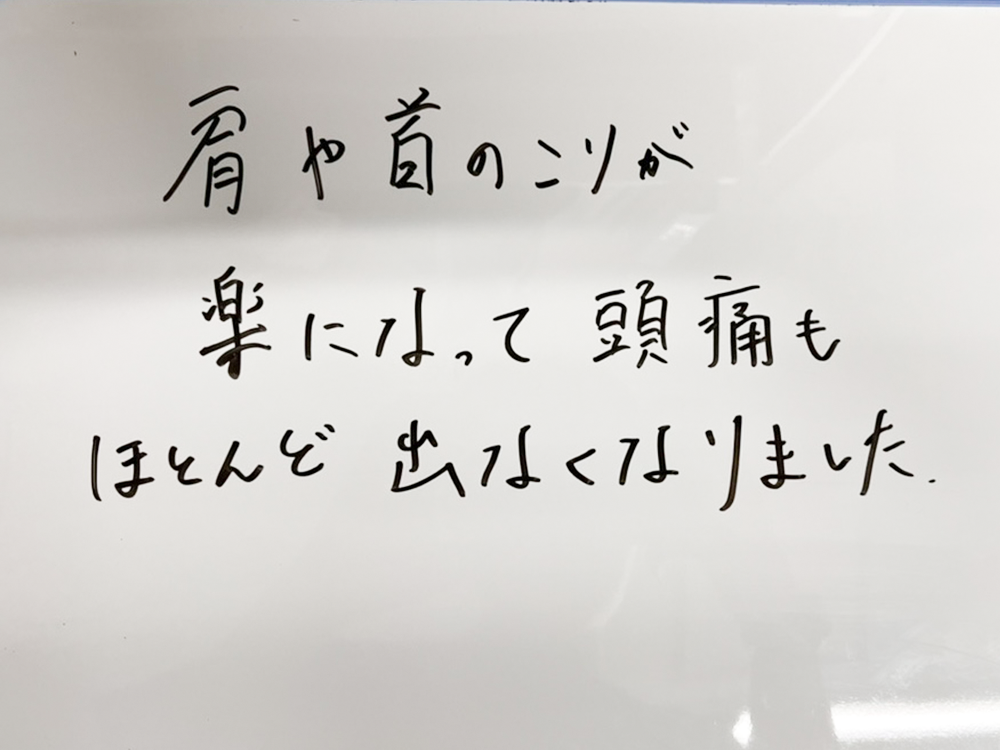 肩や首のこりが
楽になって頭痛も
ほとんど出なくなりました.